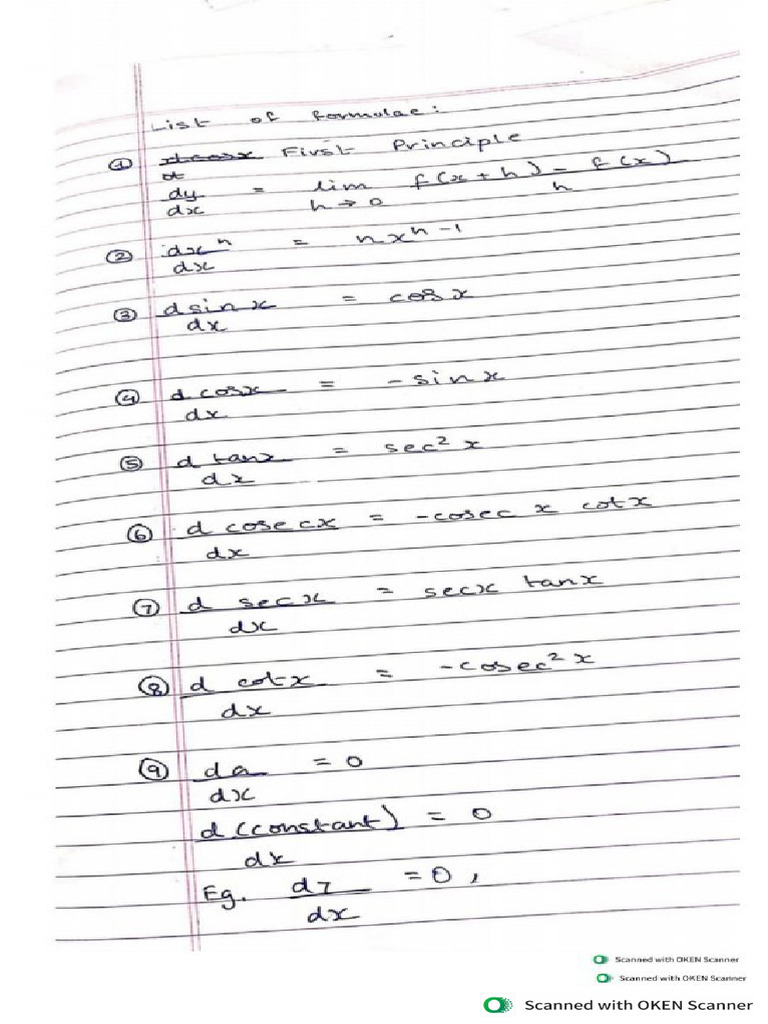 List of formulae:
① First Principle
dy/dx = lim h→0 f(x+h) - f(x)/h
② dxⁿ/dx = nxⁿ⁻¹
③ d sin x/dx = cos x
④ d cosx/dx = - sin x
⑤ d tanx/dx = sec² x
⑥ d cosecx/dx = -cosec x cotx
⑦ d secx/dx = secx tanx
⑧ d cotx/dx = -cosec² x
⑨ da/dx = 0
d(constant)/dx = 0
Eg. d7/dx = 0,
Scanned with OKEN Scanner
Scanned with OKEN Scanner
Scanned with OKEN Scanner